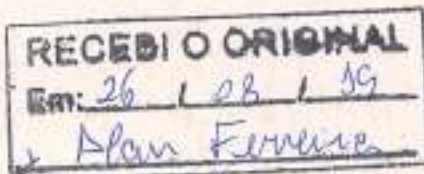 RECEBI O ORIGINAL
Em: 26 / 08 / 19
Alan Ferreira